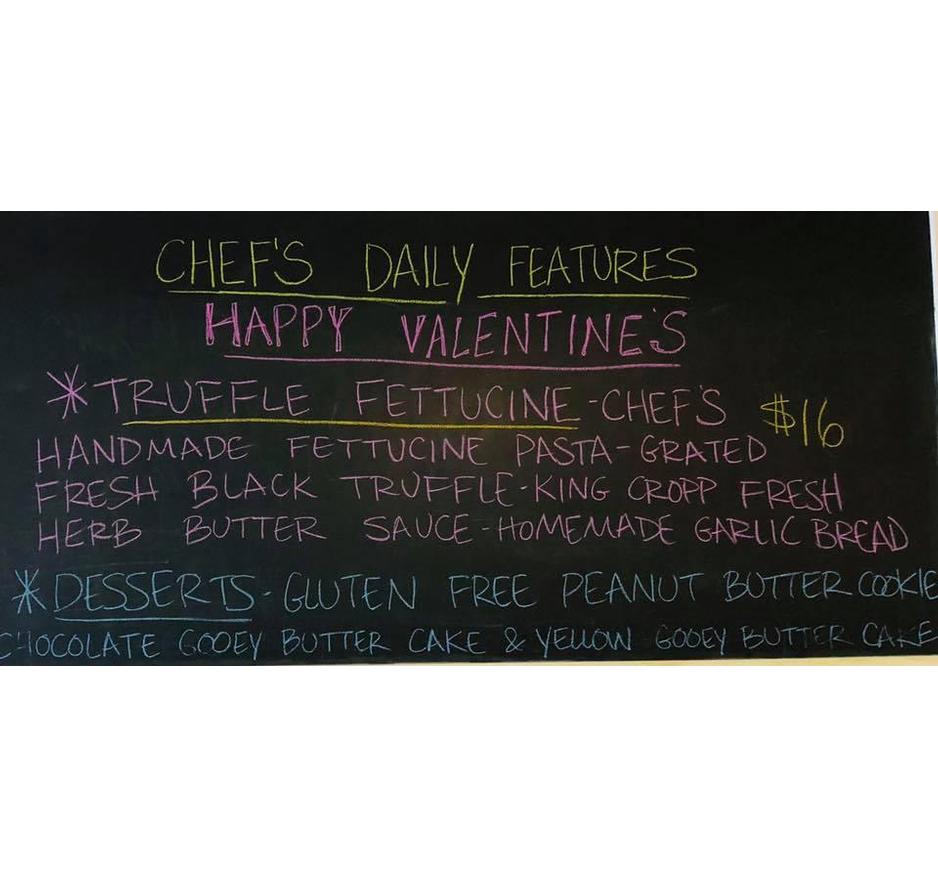 CHEF'S DAILY FEATURES
HAPPY VALENTINE'S
*TRUFFLE FETTUCINE-CHEF'S $16
HANDMADE FETTUCINE PASTA-GRATED
FRESH BLACK TRUFFLE-KING CROPP FRESH
HERB BUTTER SAUCE-HOMEMADE GARLIC BREAD
*DESSERTS-GLUTEN FREE PEANUT BUTTER COOKIE
CHOCOLATE GOOEY BUTTER CAKE & YELLOW GOOEY BUTTER CAKE